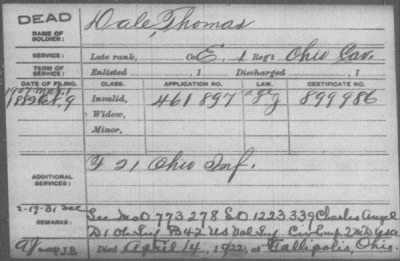 DEAD
NAME OF SOLDIER:
Dale, Thomas
SERVICE:
Late rank, Co. E, 1 Reg't Ohio Cav.
TERM OF SERVICE:
Enlisted , 1 Discharged , 1
DATE OF FILING. CLASS. APPLICATION NO. LAW. CERTIFICATE NO.
1907 Mar. 1
1882 Oct. 9 Invalid, 461897 899986
Widow,
Minor,
ADDITIONAL SERVICES:
F 21 Ohio Inf.
2-17-31
REMARKS:
See Mo O 773278 S O 1223339 Charles Angel
D 1 Oh Inf B 42 US Vol Inf Civ Emp 2 M D USA
Died April 14, 1922, at Gallipolis, Ohio.